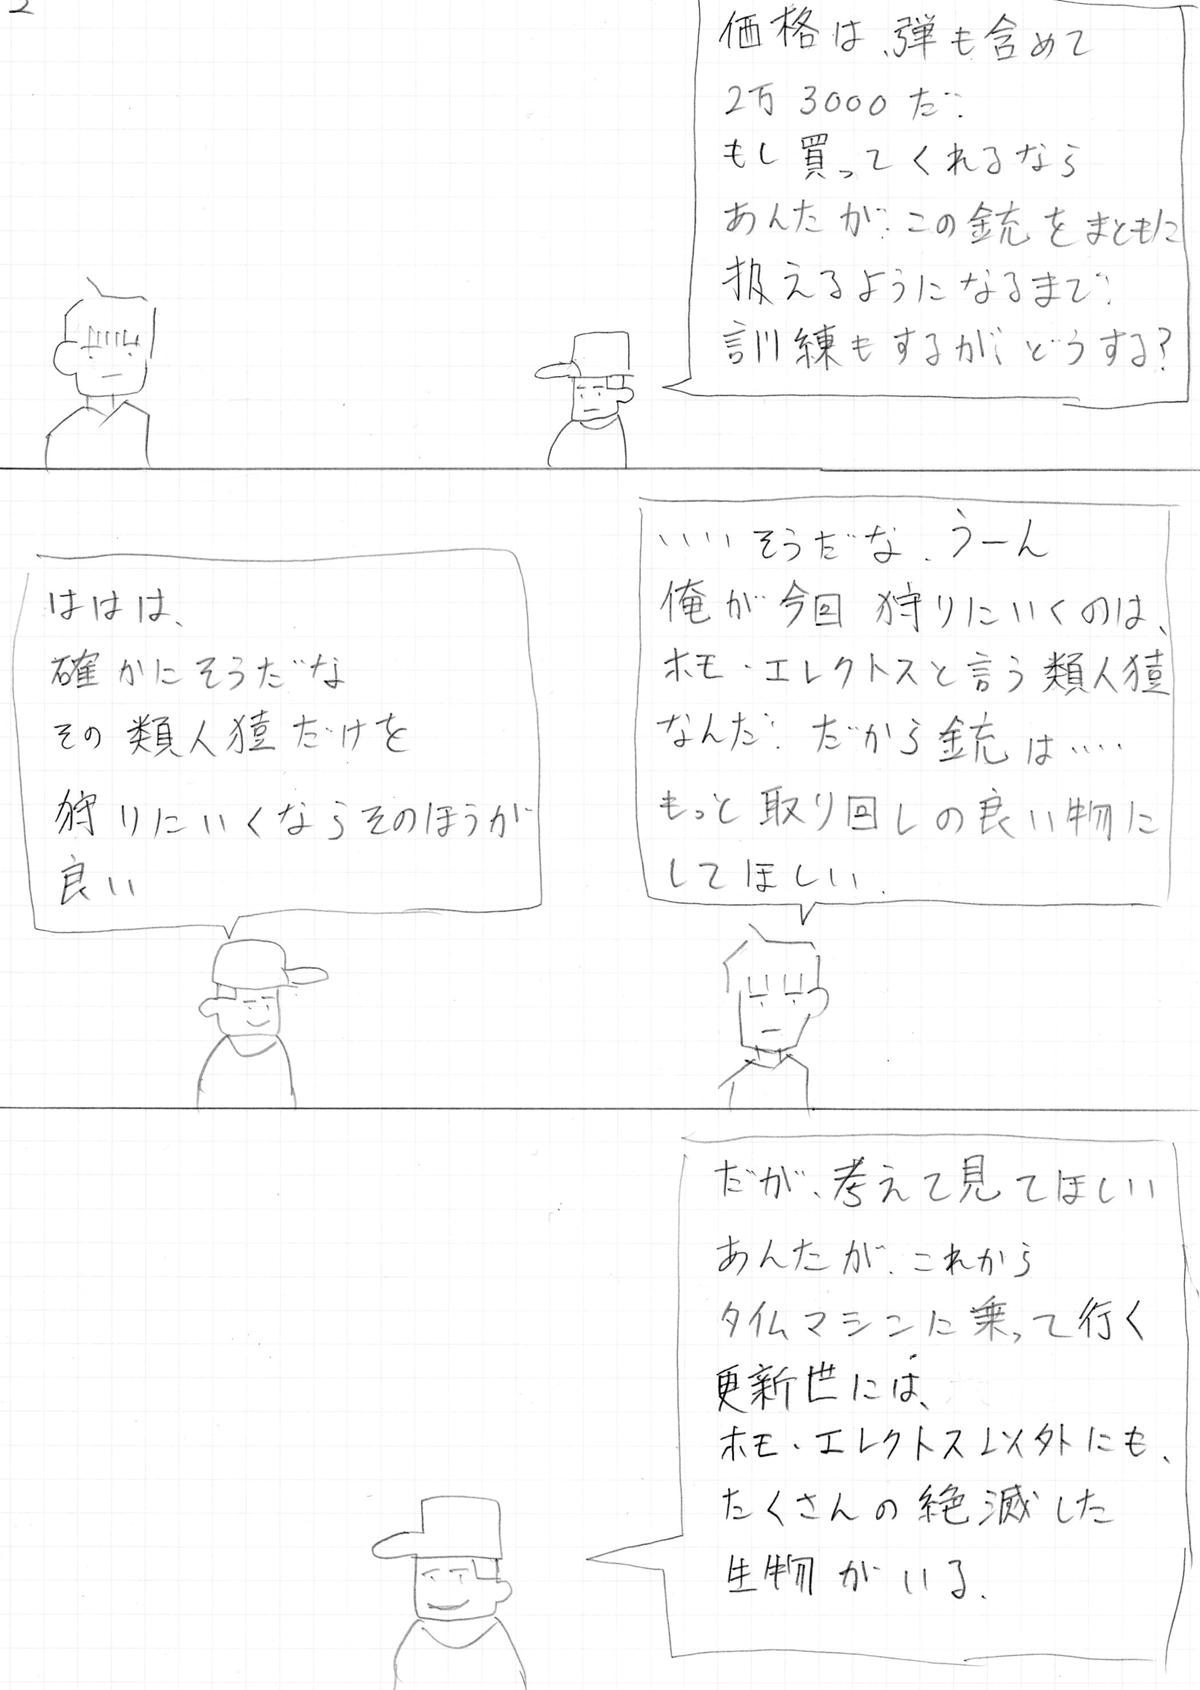 2
価格は、弾も含めて
2万3000だ
もし買ってくれるなら
あんたがこの銃をまともに
扱えるようになるまで
訓練もするが、どうする?
‥‥そうだな、うーん
俺が今回狩りにいくのは、
ホモ・エレクトスと言う類人猿
なんだ だから銃は‥‥
もっと取り回しの良い物に
してほしい.
ははは、
確かにそうだな
その類人猿だけを
狩りにいくならそのほうが
良い
だが、考えて見てほしい
あんたが、これから
タイムマシンに乗って行く
更新世には、
ホモ・エレクトス以外にも、
たくさんの絶滅した
生物がいる.